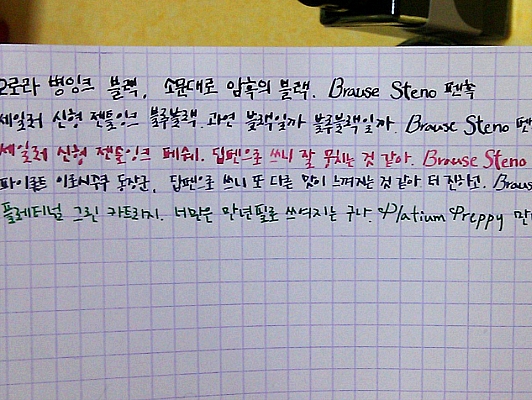 오로라 병잉크 블랙, 소문대로 암흑의 블랙. Brause Steno 펜촉
세일러 신형 젠틀잉크 블루블랙. 과연 블랙일까 블루블랙일까. Brause Steno 펜
세일러 신형 젠틀잉크 페슈. 딥펜으로 쓰니 잘 뭉치는 것 같아. Brause Steno
파이로트 이로시주쿠 동장군, 딥펜으로 쓰니 또 다른 맛이 느껴지는 것 같아 더 진하고. Braus
플레티널 그린 카트리지. 너만은 만년필로 쓰여지는 구나. Platium Preppy 만